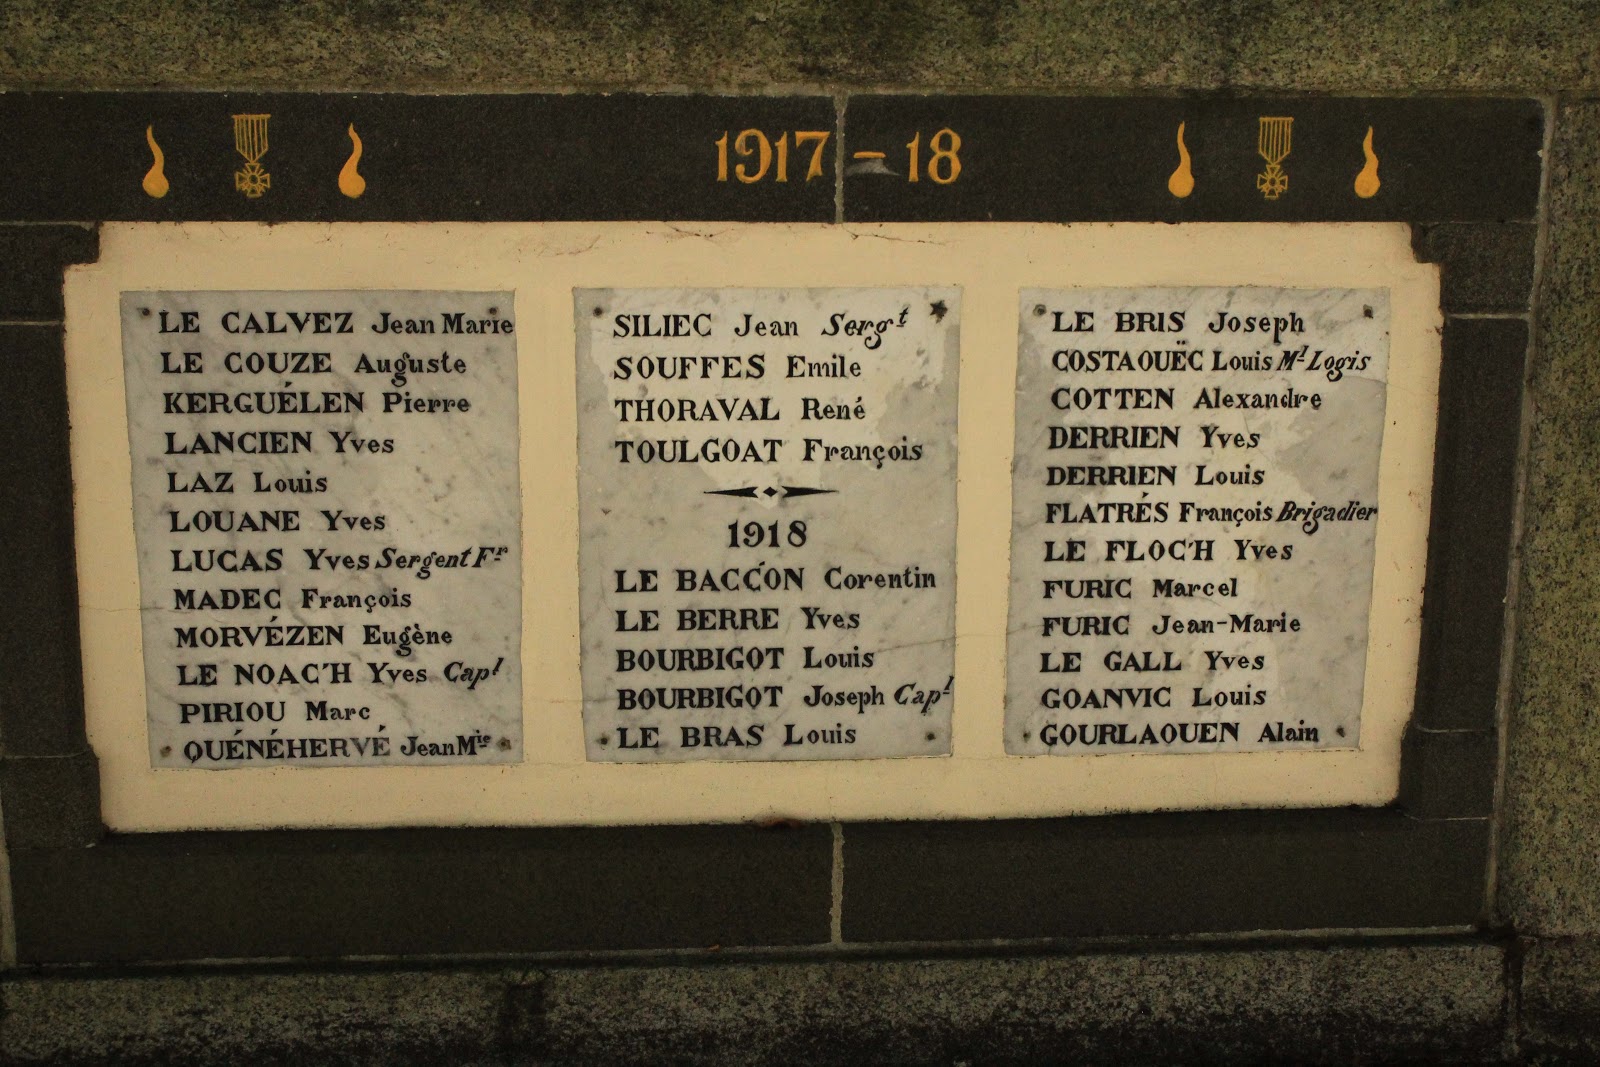 1917-18
LE CALVEZ Jean Marie
LE COUZE Auguste
KERGUÉLEN Pierre
LANCIEN Yves
LAZ Louis
LOUANE Yves
LUCAS Yves Sergent Fr
MADEC François
MORVÉZEN Eugène
LE NOAC'H Yves Capl
PIRIOU Marc
QUÉNÉHERVÉ Jean Mie
SILIEC Jean Sergt
SOUFFES Emile
THORAVAL René
TOULGOAT François
1918
LE BACC'ON Corentin
LE BERRE Yves
BOURBIGOT Louis
BOURBIGOT Joseph Capl
LE BRAS Louis
LE BRIS Joseph
COSTAOUËC Louis Ml Logis
COTTEN Alexandre
DERRIEN Yves
DERRIEN Louis
FLATRÉS François Brigadier
LE FLOC'H Yves
FURIC Marcel
FURIC Jean-Marie
LE GALL Yves
GOANVIC Louis
GOURLAOUEN Alain